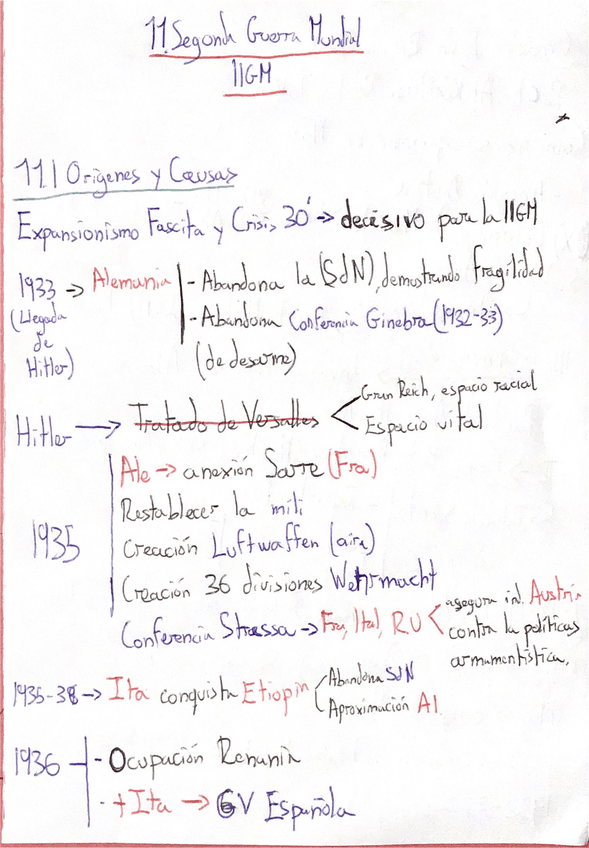 11. Segunda Guerra Mundial
IIGM
11.1 Origenes y Causas
Expansionismo Fascita y Crisis 30' → decisivo para la IIGM
1933 → Alemania
- Abandona la (SdN), demostrando fragilidad
(Llegada de Hitler)
- Abandona Conferencia Ginebra (1932-33)
(de desarme)
Hitler → Tratado de Versalles
Gran Reich, espacio racial
Espacio vital
1935
Ale → anexión Sarre (Fra)
Restablecer la mili
Creación Luftwaffen (aire)
Creación 36 divisiones Wehrmacht
Conferencia Stressa → Fra, Ital, RU
asegura in. Austria
contra la políticas
armamentística.
1935-38 → Ita conquista Etiopia
Abandona SdN
Aproximación Al.
1936
- Ocupación Renania
- + Ita → GV Española